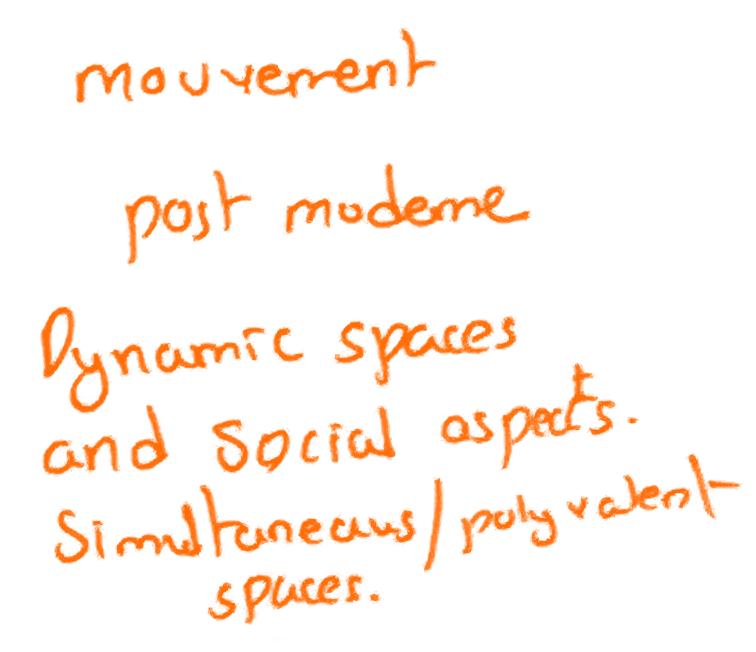 mouvement
post moderne
Dynamic spaces
and social aspects.
Simultaneous/polyvalent
spaces.